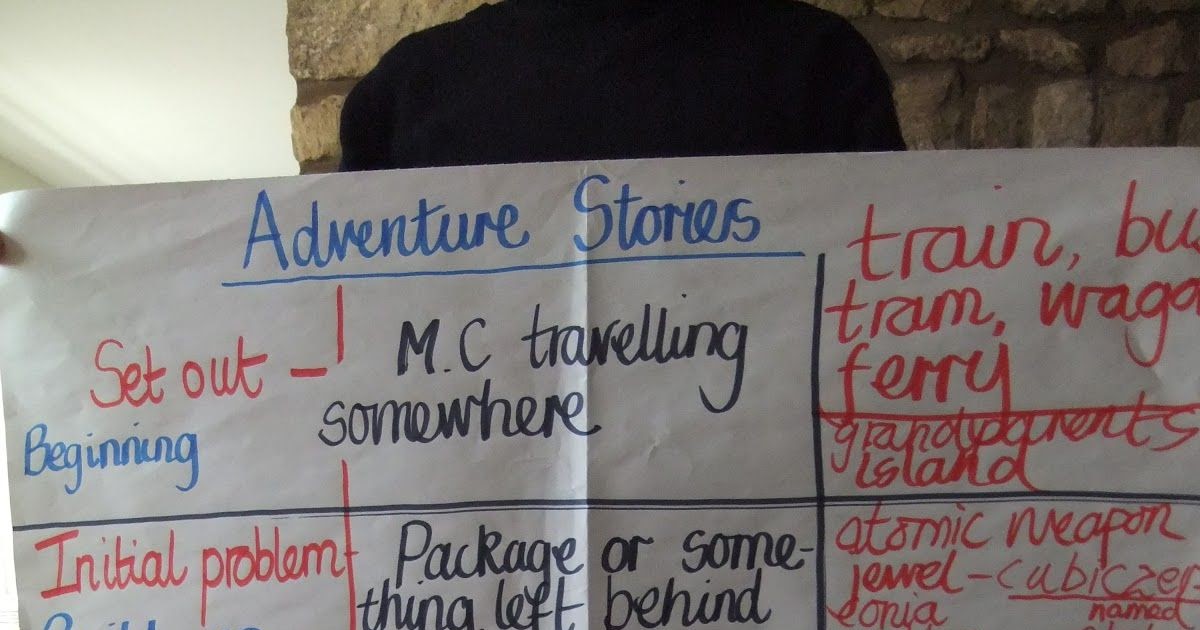 Adventure Stories
Set out –
Beginning
M.C travelling
somewhere
train, bu
tram, wago
ferry
grandparents
island
Initial problem
Package or some-
thing left behind
atomic weapon
jewel - cubic zer
conia
named